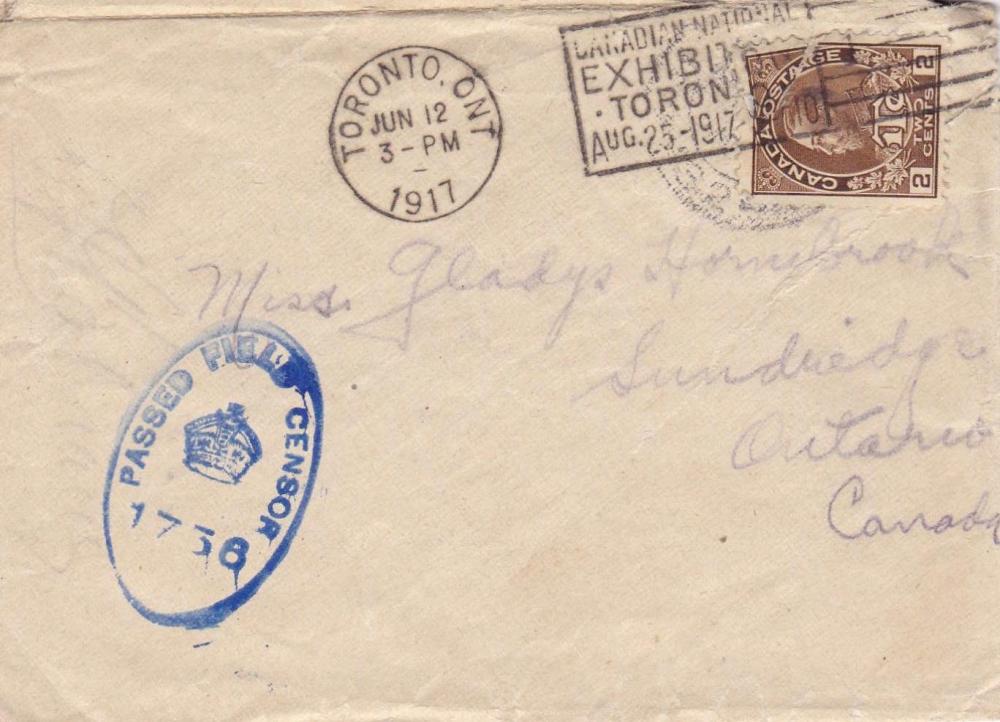 TORONTO, ONT
JUN 12
3-PM
1917
CANADIAN NATIONAL
EXHIBI
· TORON
AUG. 25-1917- 10
CANADA POSTAGE
1Tc
TWO CENTS
2 2
CANADA
Miss. Gladys Hornibrook
Sundridge
Ontario
Canada
PASSED FIELD CENSOR
1758